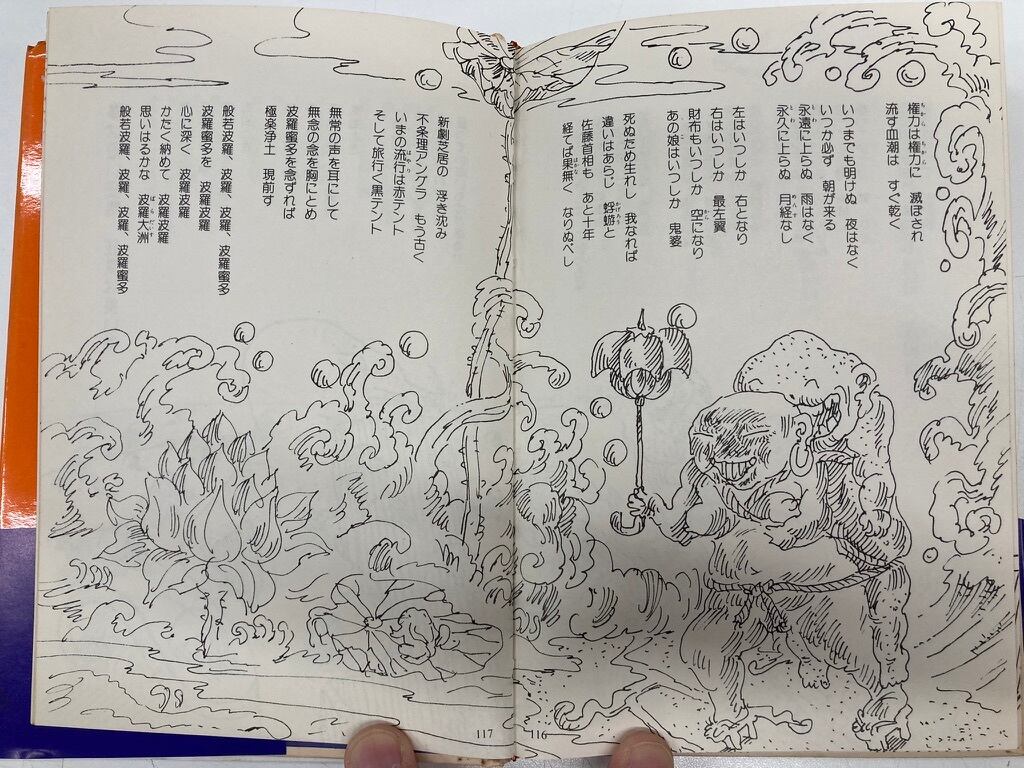 権力は権力に　滅ぼされ
流す血潮は　すぐ乾く
いつまでも明けぬ　夜はなく
いつか必ず　朝が来る
永遠に上らぬ　雨はなく
永久に上らぬ　月経なし
左はいつしか　右となり
右はいつしか　最左翼
財布もいつしか　空になり
あの娘はいつしか　鬼婆
死ぬため生れし　我なれば
違いはあらじ　蜉蝣と
佐藤首相も　あと十年
経てば果無く　なりぬべし
新劇芝居の　浮き沈み
不条理アングラ　もう古く
いまの流行は赤テント
そして旅行く黒テント
無常の声を耳にして
無念の念を胸にとめ
波羅蜜多を念ずれば
極楽浄土　現前す
般若波羅、波羅、波羅、波羅蜜多
波羅蜜多を　波羅波羅
心に深く　波羅波羅
かたく納めて　波羅波羅
思いはるかな　波羅大洲
般若波羅、波羅、波羅、波羅蜜多
117
116